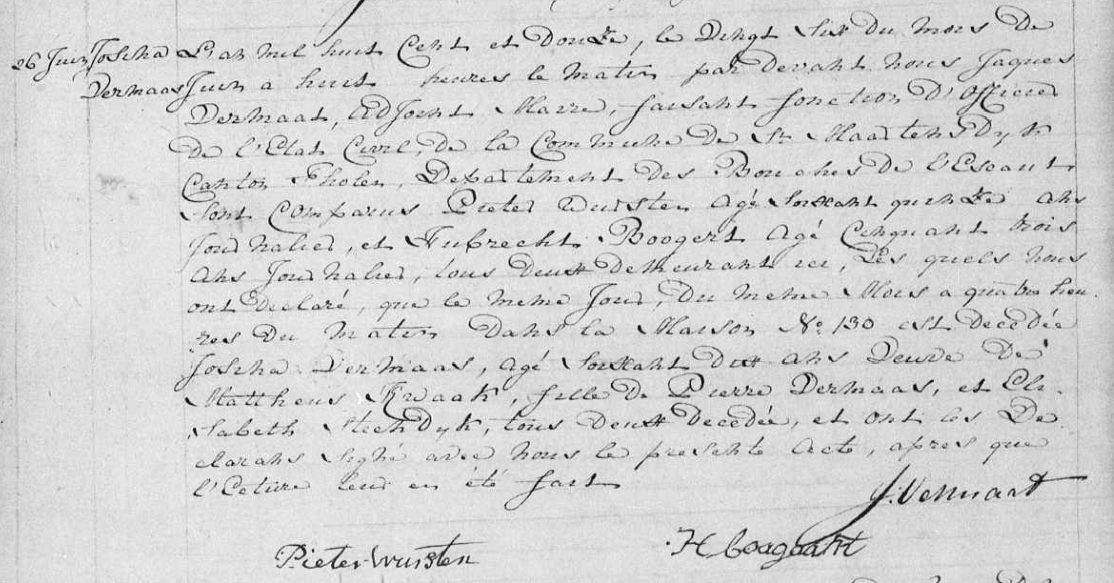 26 Juin Joscha L'an mil huit Cent et Douze, le Vingt Six Du mois de
Vermaas Juin a huit heures le matin par devant nous Jaques
Vermaat, Adjoint Marre, faisant fonction D'Officier
de l'Etat Civil, de la Commune de St Maartens Dyk
Canton Tholen, Departement des Bouches de l'Escaut
sont Comparus Pieter Wursten agé soixant quinze ans
Journalier, et Hubrecht Boogert agé Cinquant trois
Ans Journalier, tous deux Demeurant ici, Les quels nous
ont declaré, que le meme Jour, Du meme Mois a quatre heu-
res Du matin dans la Maison No 130 est decedée
Joscha Vermaas, agé soixant dix ans Veuve De
Mattheus Kwaak, fille de Pierre Vermaas, et Eli-
sabeth Steendyk, tous deux Decedée, et ont les De
clarans signe avec nous le presente Acte, apres que
l'Ceture leur en été fait
J. Vermaat
Pieter Wursten
H Boogaart